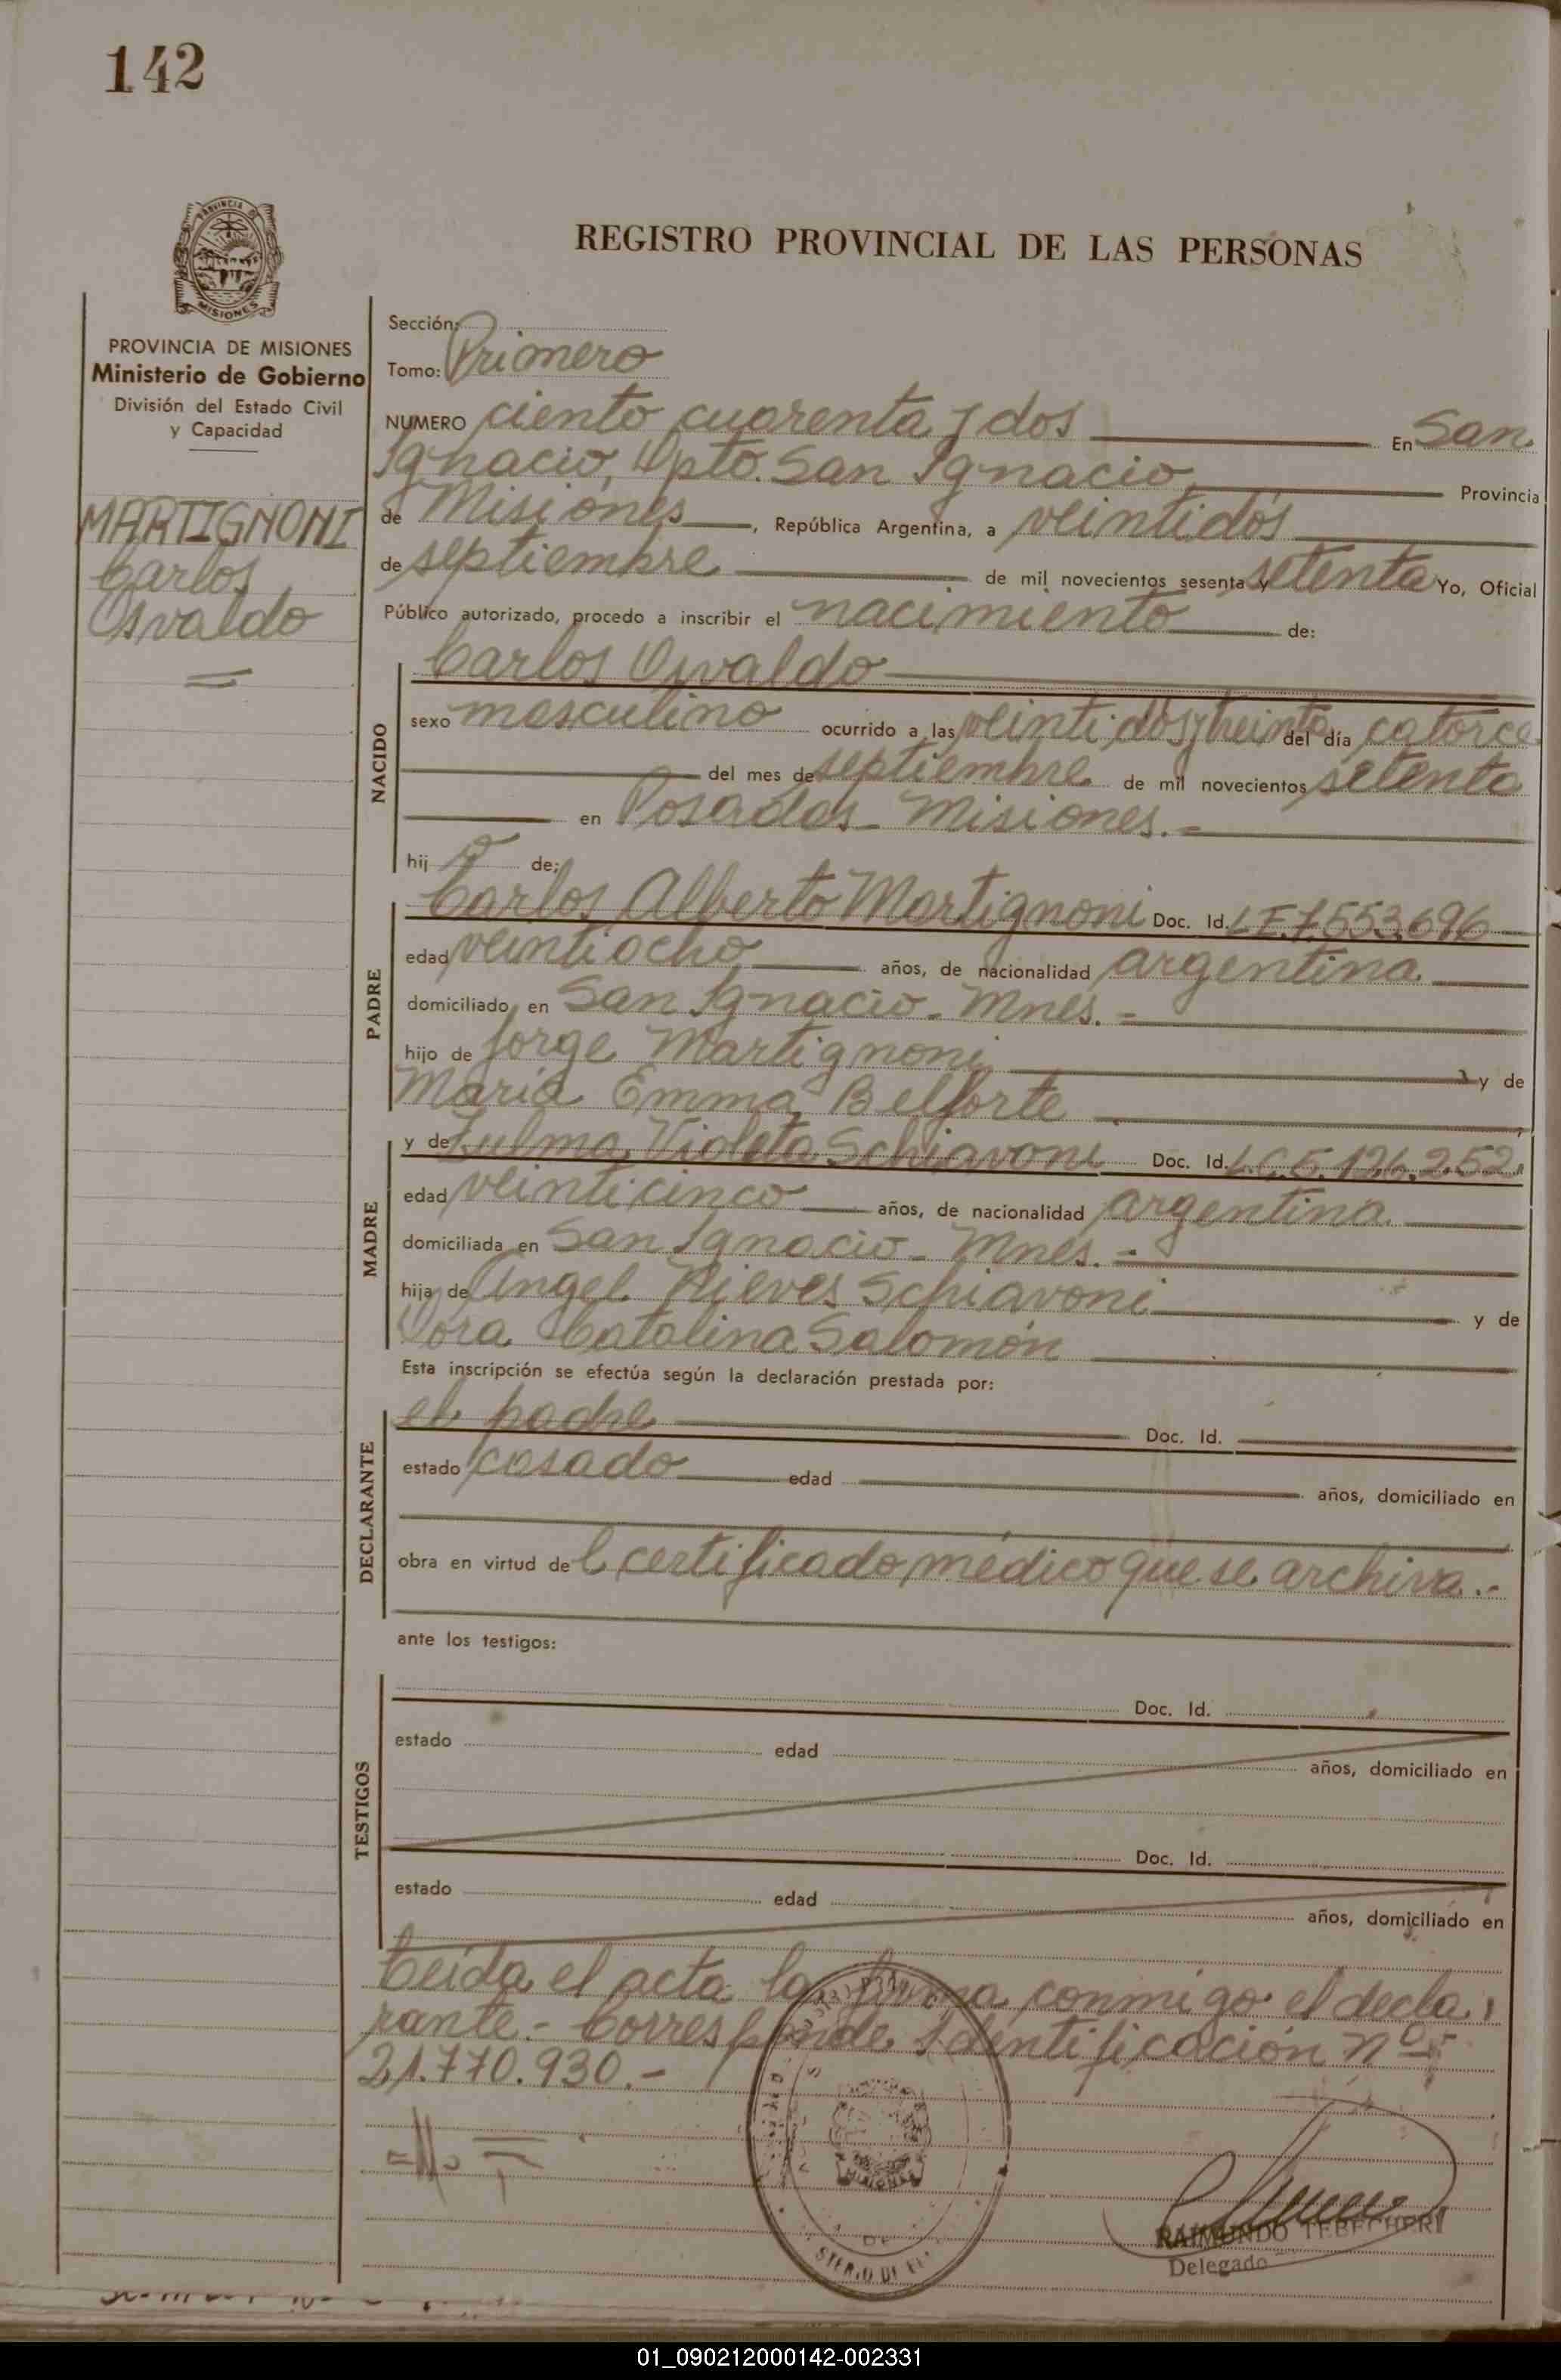 142
PROVINCIA DE
MISIONES
REGISTRO PROVINCIAL DE LAS PERSONAS
PROVINCIA DE MISIONES
Ministerio de Gobierno
División del Estado Civil
y Capacidad
MARTIGNONI
Carlos
Osvaldo
Sección:
Tomo: Primero
NUMERO ciento cuarenta y dos En San
Ignacio, Dpto. San Ignacio, Provincia
de Misiones, República Argentina, a veintidós
de septiembre de mil novecientos sesenta y setenta Yo, Oficial
Público autorizado, procedo a inscribir el nacimiento de:
NACIDO
Carlos Osvaldo
sexo masculino ocurrido a las veintidós y treinta del día catorce
del mes de septiembre de mil novecientos setenta
en Posadas - Misiones.-
hijo de:
PADRE
Carlos Alberto Martignoni Doc. Id. L.E.7.553.696
edad veintiocho años, de nacionalidad argentina
domiciliado en San Ignacio - Mnes.-
hijo de Jorge Martignoni y de
María Emma Belforte
MADRE
y de Zulma Violeta Schiavoni Doc. Id. L.C.5.126.252
edad veinticinco años, de nacionalidad argentina
domiciliada en San Ignacio - Mnes.-
hija de Angel Nieves Schiavoni y de
Dora Catalina Salomón
Esta inscripción se efectúa según la declaración prestada por:
DECLARANTE
el padre Doc. Id.
estado casado edad años, domiciliado en
obra en virtud del certificado médico que se archiva.-
ante los testigos:
TESTIGOS
Doc. Id.
estado edad años, domiciliado en
Doc. Id.
estado edad años, domiciliado en
Leída el acta la firma conmigo el decla
rante.- Corresponde Identificación nº
21.770.930.-
MISIONES
DE
RAIMUNDO TEBECHERI
Delegado
01_090212000142-002331